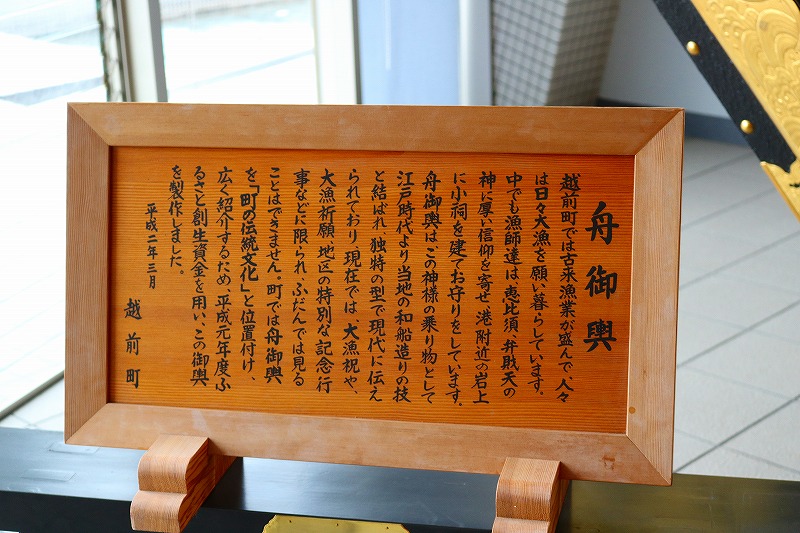 舟御輿
越前町では古来漁業が盛んで、人々
は日々大漁を願い暮らしています。
中でも漁師達は、恵比須、弁戝天の
神に厚い信仰を寄せ、港附近の岩上
に小祠を建てお守りをしています。
舟御輿は、この神様の乗り物として
江戸時代より当地の和船造りの技
と結ばれ、独特の型で現代に伝え
られており、現在では、大漁祝や、
大漁祈願、地区の特別な記念行
事などに限られ、ふだんでは見る
ことはできません。町では舟御輿
を「町の伝統文化」と位置付け、
広く紹介するため、平成元年度ふ
るさと創生資金を用い、この御輿
を製作しました。
平成二年三月
越前町